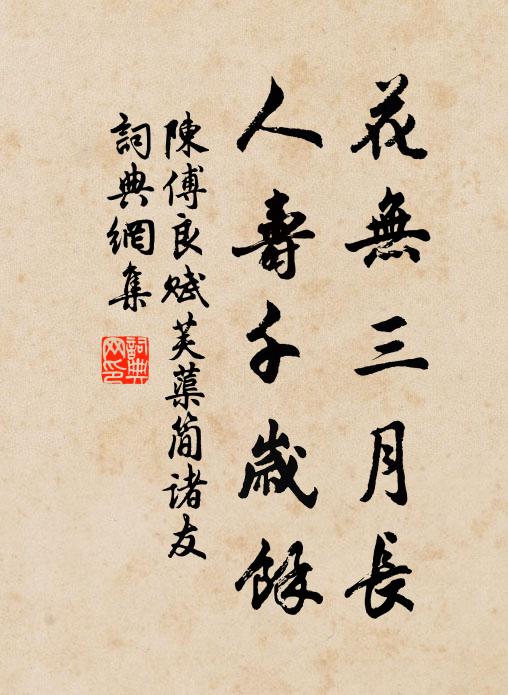 花無三月長
人壽千歲餘
陳傅良賦芙蕖简诸友
詞典網集
詞典网印